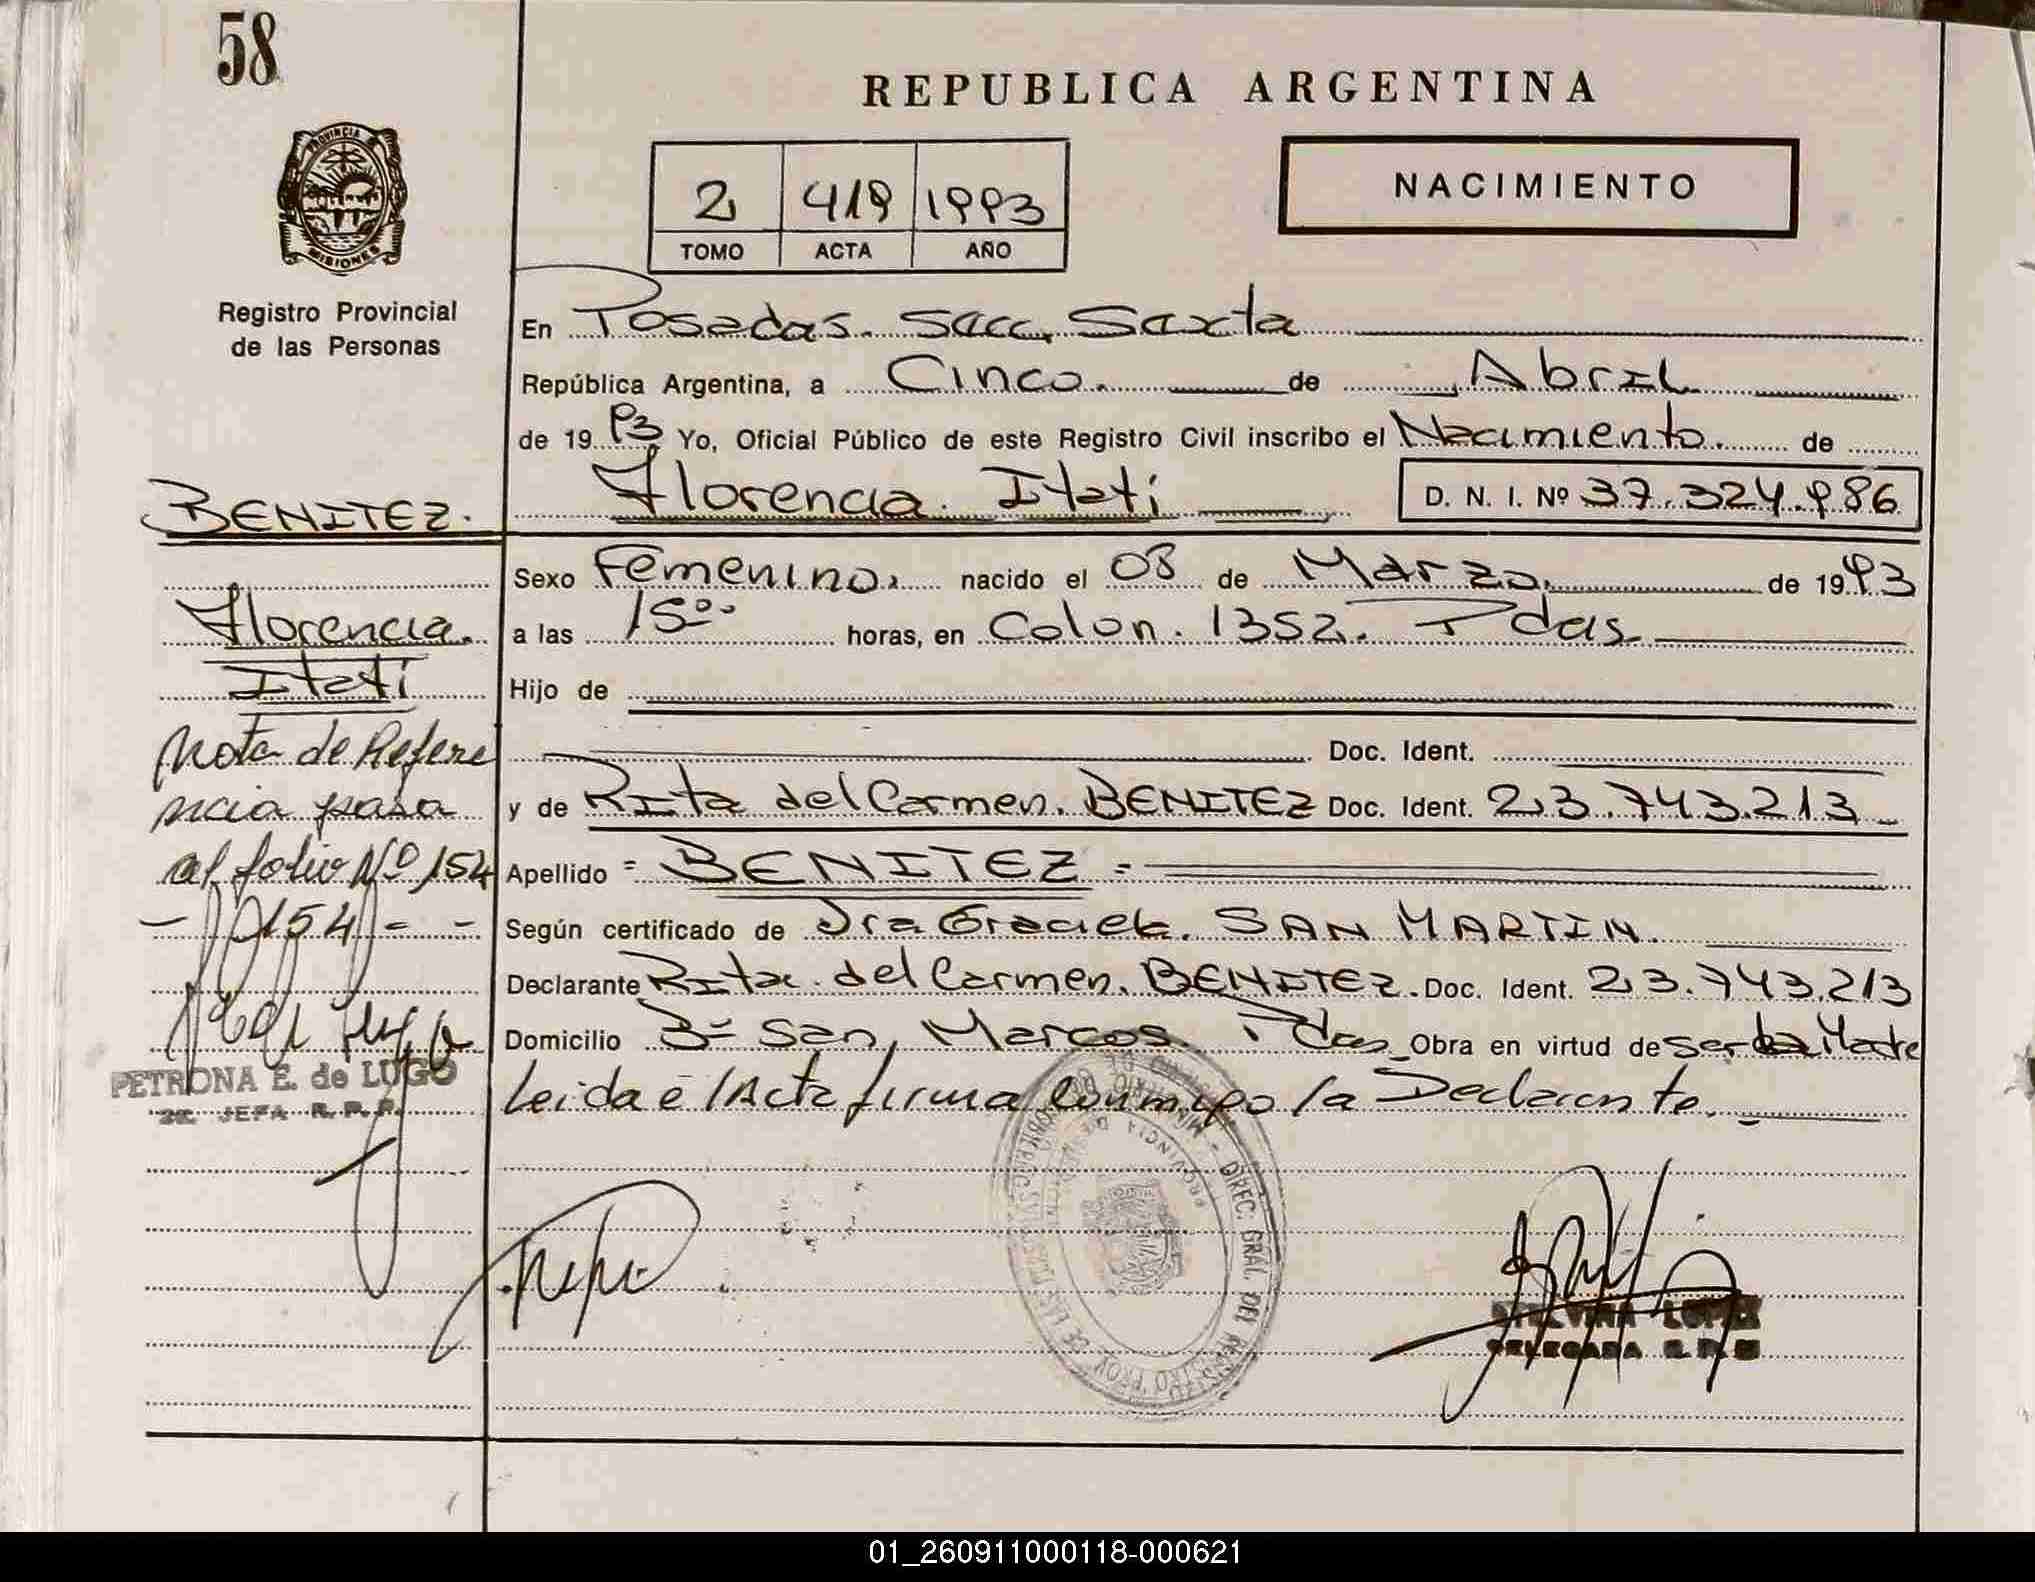 58
REPUBLICA ARGENTINA
NACIMIENTO
2 419 1993
TOMO ACTA AÑO
PROVINCIA
MISIONES
Registro Provincial
de las Personas
En Posadas. Secc. Sexta
República Argentina, a Cinco. de Abril
de 1993 Yo, Oficial Público de este Registro Civil inscribo el Nacimiento. de
Florencia Itati D. N. I. Nº 37.324.986
Sexo Femenino. nacido el 08 de Marzo. de 1993
a las 15⁰⁰ horas, en Colon. 1352. Pdas.
Hijo de
Doc. Ident.
y de Rita del Carmen. BENITEZ Doc. Ident. 23.743.213
Apellido = BENITEZ =
Según certificado de Dra Graciela. SAN MARTIN.
Declarante Rita del Carmen. BENITEZ. Doc. Ident. 23.743.213
Domicilio Bº San Marcos. Pdas Obra en virtud de ser la Madre
Leida el Acta firma conmigo la Declarante.
BENITEZ.
Florencia.
Itati
Nota de Refere
ncia pasa
al folio Nº 154
- 154 - -
PETRONA E. de LUGO
JEFA R.P.P.
DIREC. GRAL. DEL REGISTRO PROV. DE LAS PERSONAS
LOPEZ
DELEGADA R.P.P.
01_260911000118-000621